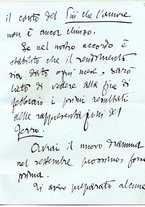 il conto del Più che l'amore
non è ancor chiuso.
Se nel nostro accordo è
stabilito che il rendimento
sia dato ogni mese, sarò
lieto di vedere alla fine di
febbraio i primi resultati
delle rappresentazioni del
Ferro.
Avrai il nuovo dramma
nel settembre prossimo, forse
prima.
Vi avevo preparato alcune